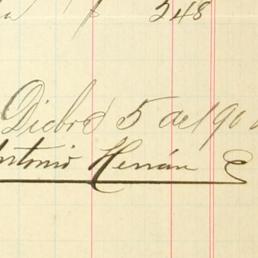 548
Dicbre 5 de 190
Antonio Herrán